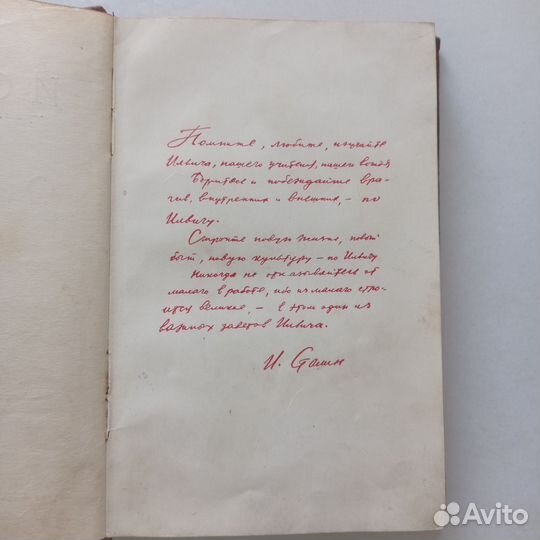 Помните, любите, изучайте
Ильича, нашего учителя, нашего вождя
Боритесь и побеждайте вра-
гов, внутренних и внешних, – по
Ильичу.
Стройте новую жизнь, новый
быт, новую культуру – по Ильичу
Никогда не отказывайтесь от
малого в работе, ибо из малого стро-
ится великое, – в этом один из
важных заветов Ильича.
И. Сталин
Avito